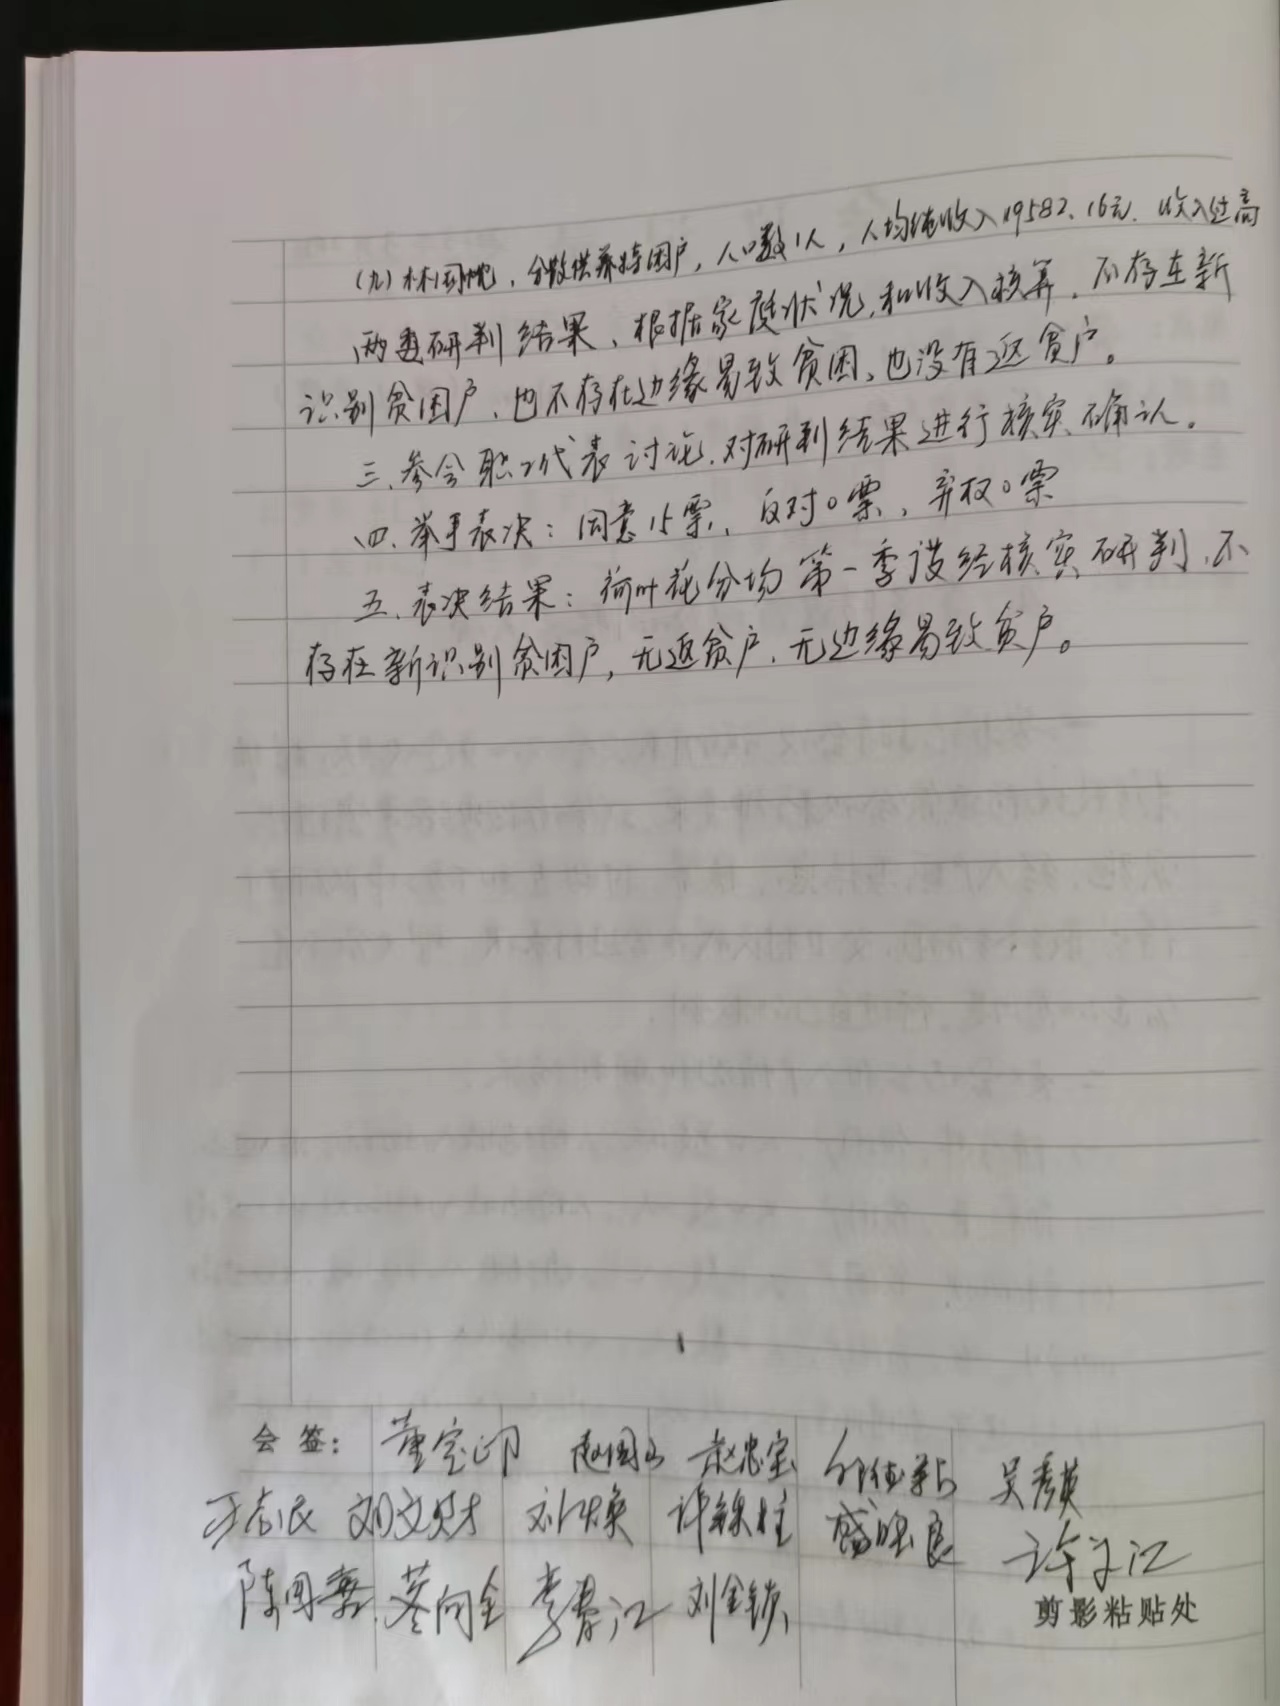 (九)林国艳，分散供养特困户，人口数1人，人均纯收入19582.16元．收入过高
两类研判结果、根据家庭状况，和收入核算，不存在新
识别贫困户，也不存在边缘易致贫困，也没有返贫户。
三、参会职工代表讨论，对研判结果进行核实确认。
四、举手表决：同意15票，反对0票，弃权0票
五、表决结果：荷叶花分场第一季没经核实研判，不
存在新识别贫困户，无返贫户，无边缘易致贫户。
会 签： 董宝印 赵国 赵忠宝 吴秀英
王志民 刘文财 刘焕 许铁柱 良 许江
陈国 向全 李春江 刘金锁
剪影粘贴处